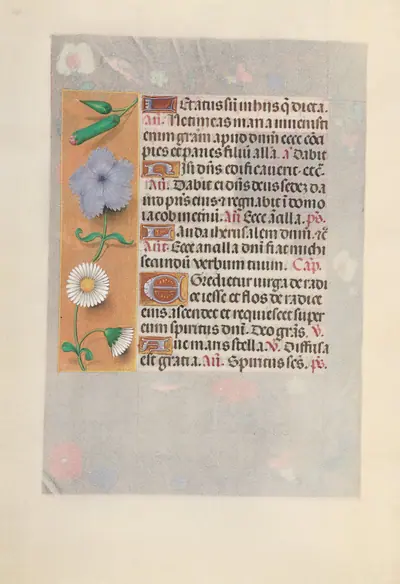 Letatus sũ in hijs q̃ dicta.
Añ. Ne timeas maria inuenisti
enim grãm apud dnm ecce cõci
pies et paries filiũ alla. a Dabit
Nisi dñs edificauerit. etc̃.
Añ. Dabit ei dñs deus sedez da
uid pris eius et regnabit ĩ domo
iacob ineternũ. Añ Ecce ãcilla. ps.
Lauda iherusalem dnm. etc̃
Añ Ecce ancilla dñi fiat michi
secundũ verbum tuum. Cap.
Egredietur uirga de radi
ce iesse et flos de radice
eius ascendet et requiescet super
eum spiritus dñi. Deo grãs. V.
Aue maris stella. V. Diffusa
est gratia. Añ. Spiritus scs. ps.